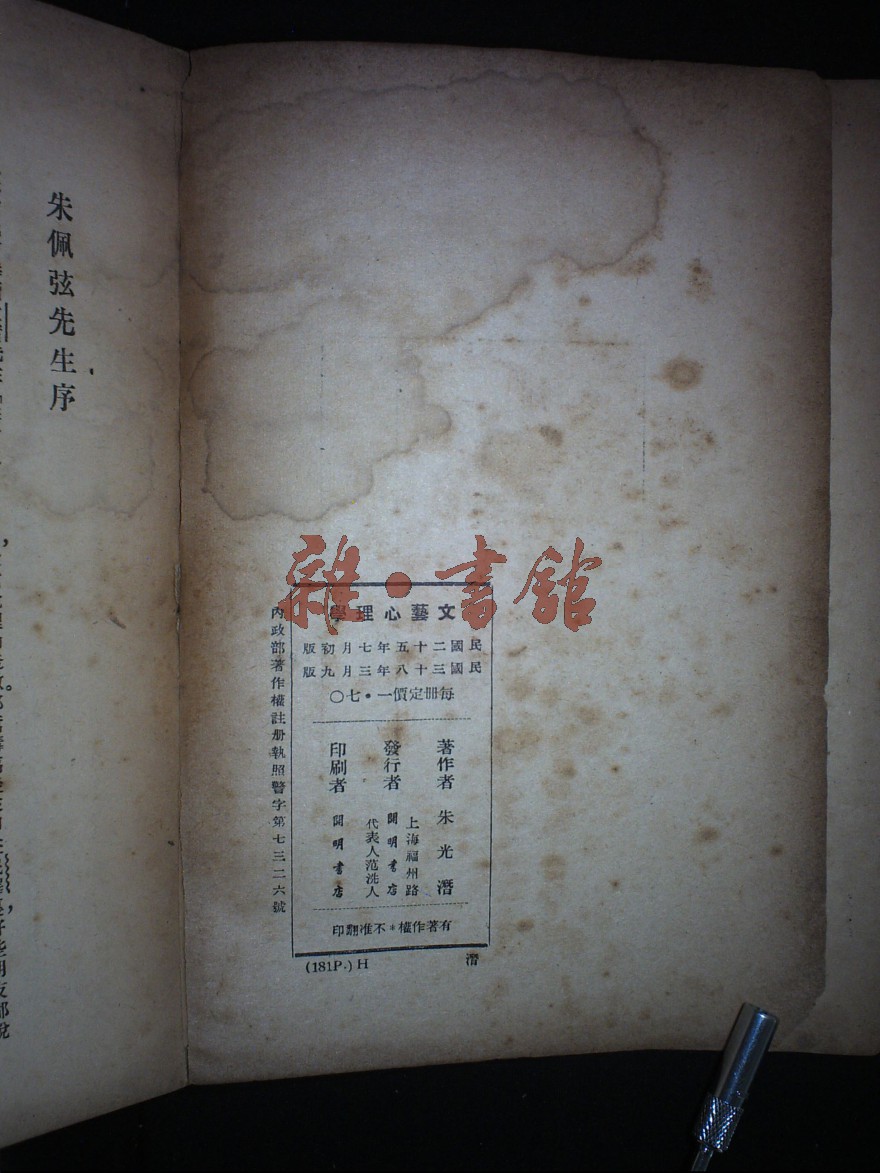 朱佩弦先生序
雜·書館
文藝心理學
民國二十五年七月初版
民國三十八年三月九版
每冊定價一·七〇
著作者 朱光潛
發行者 上海福州路 開明書店 代表人范洗人
印刷者 開明書店
有著作權*不准翻印
內政部著作權註册執照警字第七三二六號
(181P.) H 潛